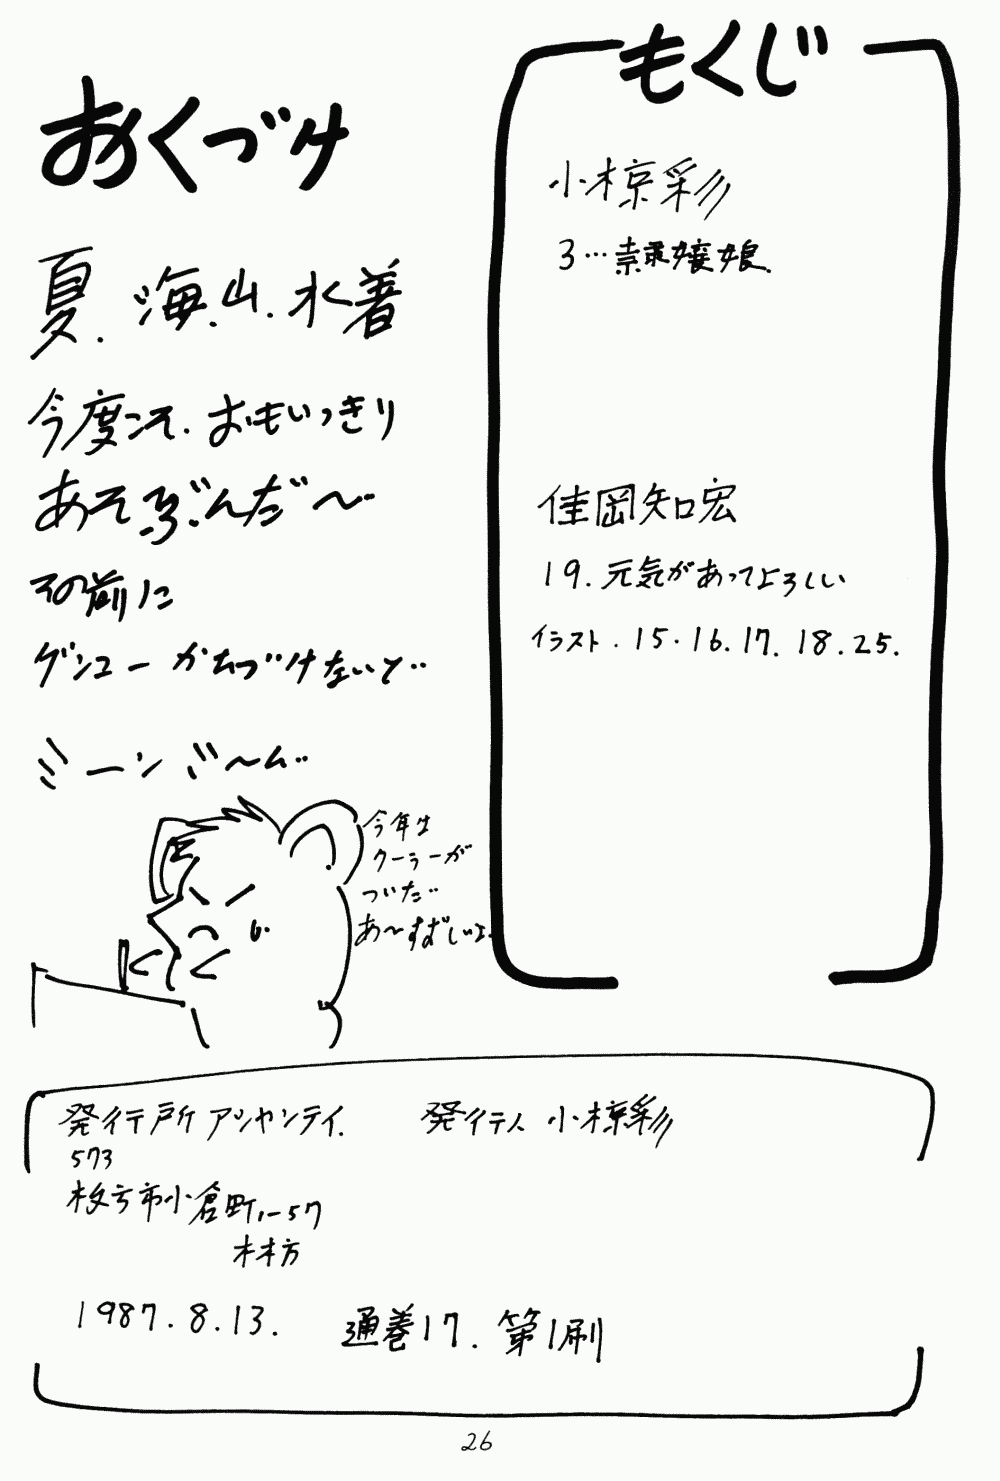 おくづけ
夏.海.山.水着
今度こそ.おもいっきり
あそぶんだ〜‥
その前に
ゲンコーかたづけないと‥
ミーンミ〜ム‥
今年は
クーラーが
ついた‥
あ〜すずしいよ.
もくじ
小椋彩
3…隷嬢娘.
佳岡知宏
19.元気があってよろしい
イラスト.15.16.17.18.25.
発行所 アシャンティ.
発行人 小椋彩
573
枚方市小倉町11-57
林方
1987.8.13.
通巻17.第1刷
26